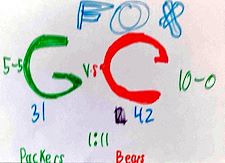 FOX
5-5 G V.S C 10-0
31 42
1:11
Packers Bears